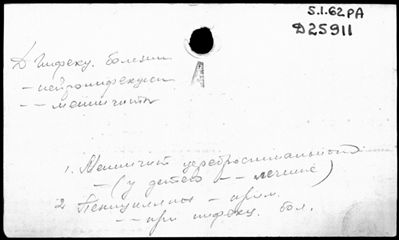 5.1.62РА
D25911
Д Инфекц. болезни
- нейроинфекции
- - менингиты
1. Менингит цереброспинальный
- (у детей - - лечение)
2 Пенициллины - прим.
- - при инфекц. бол.